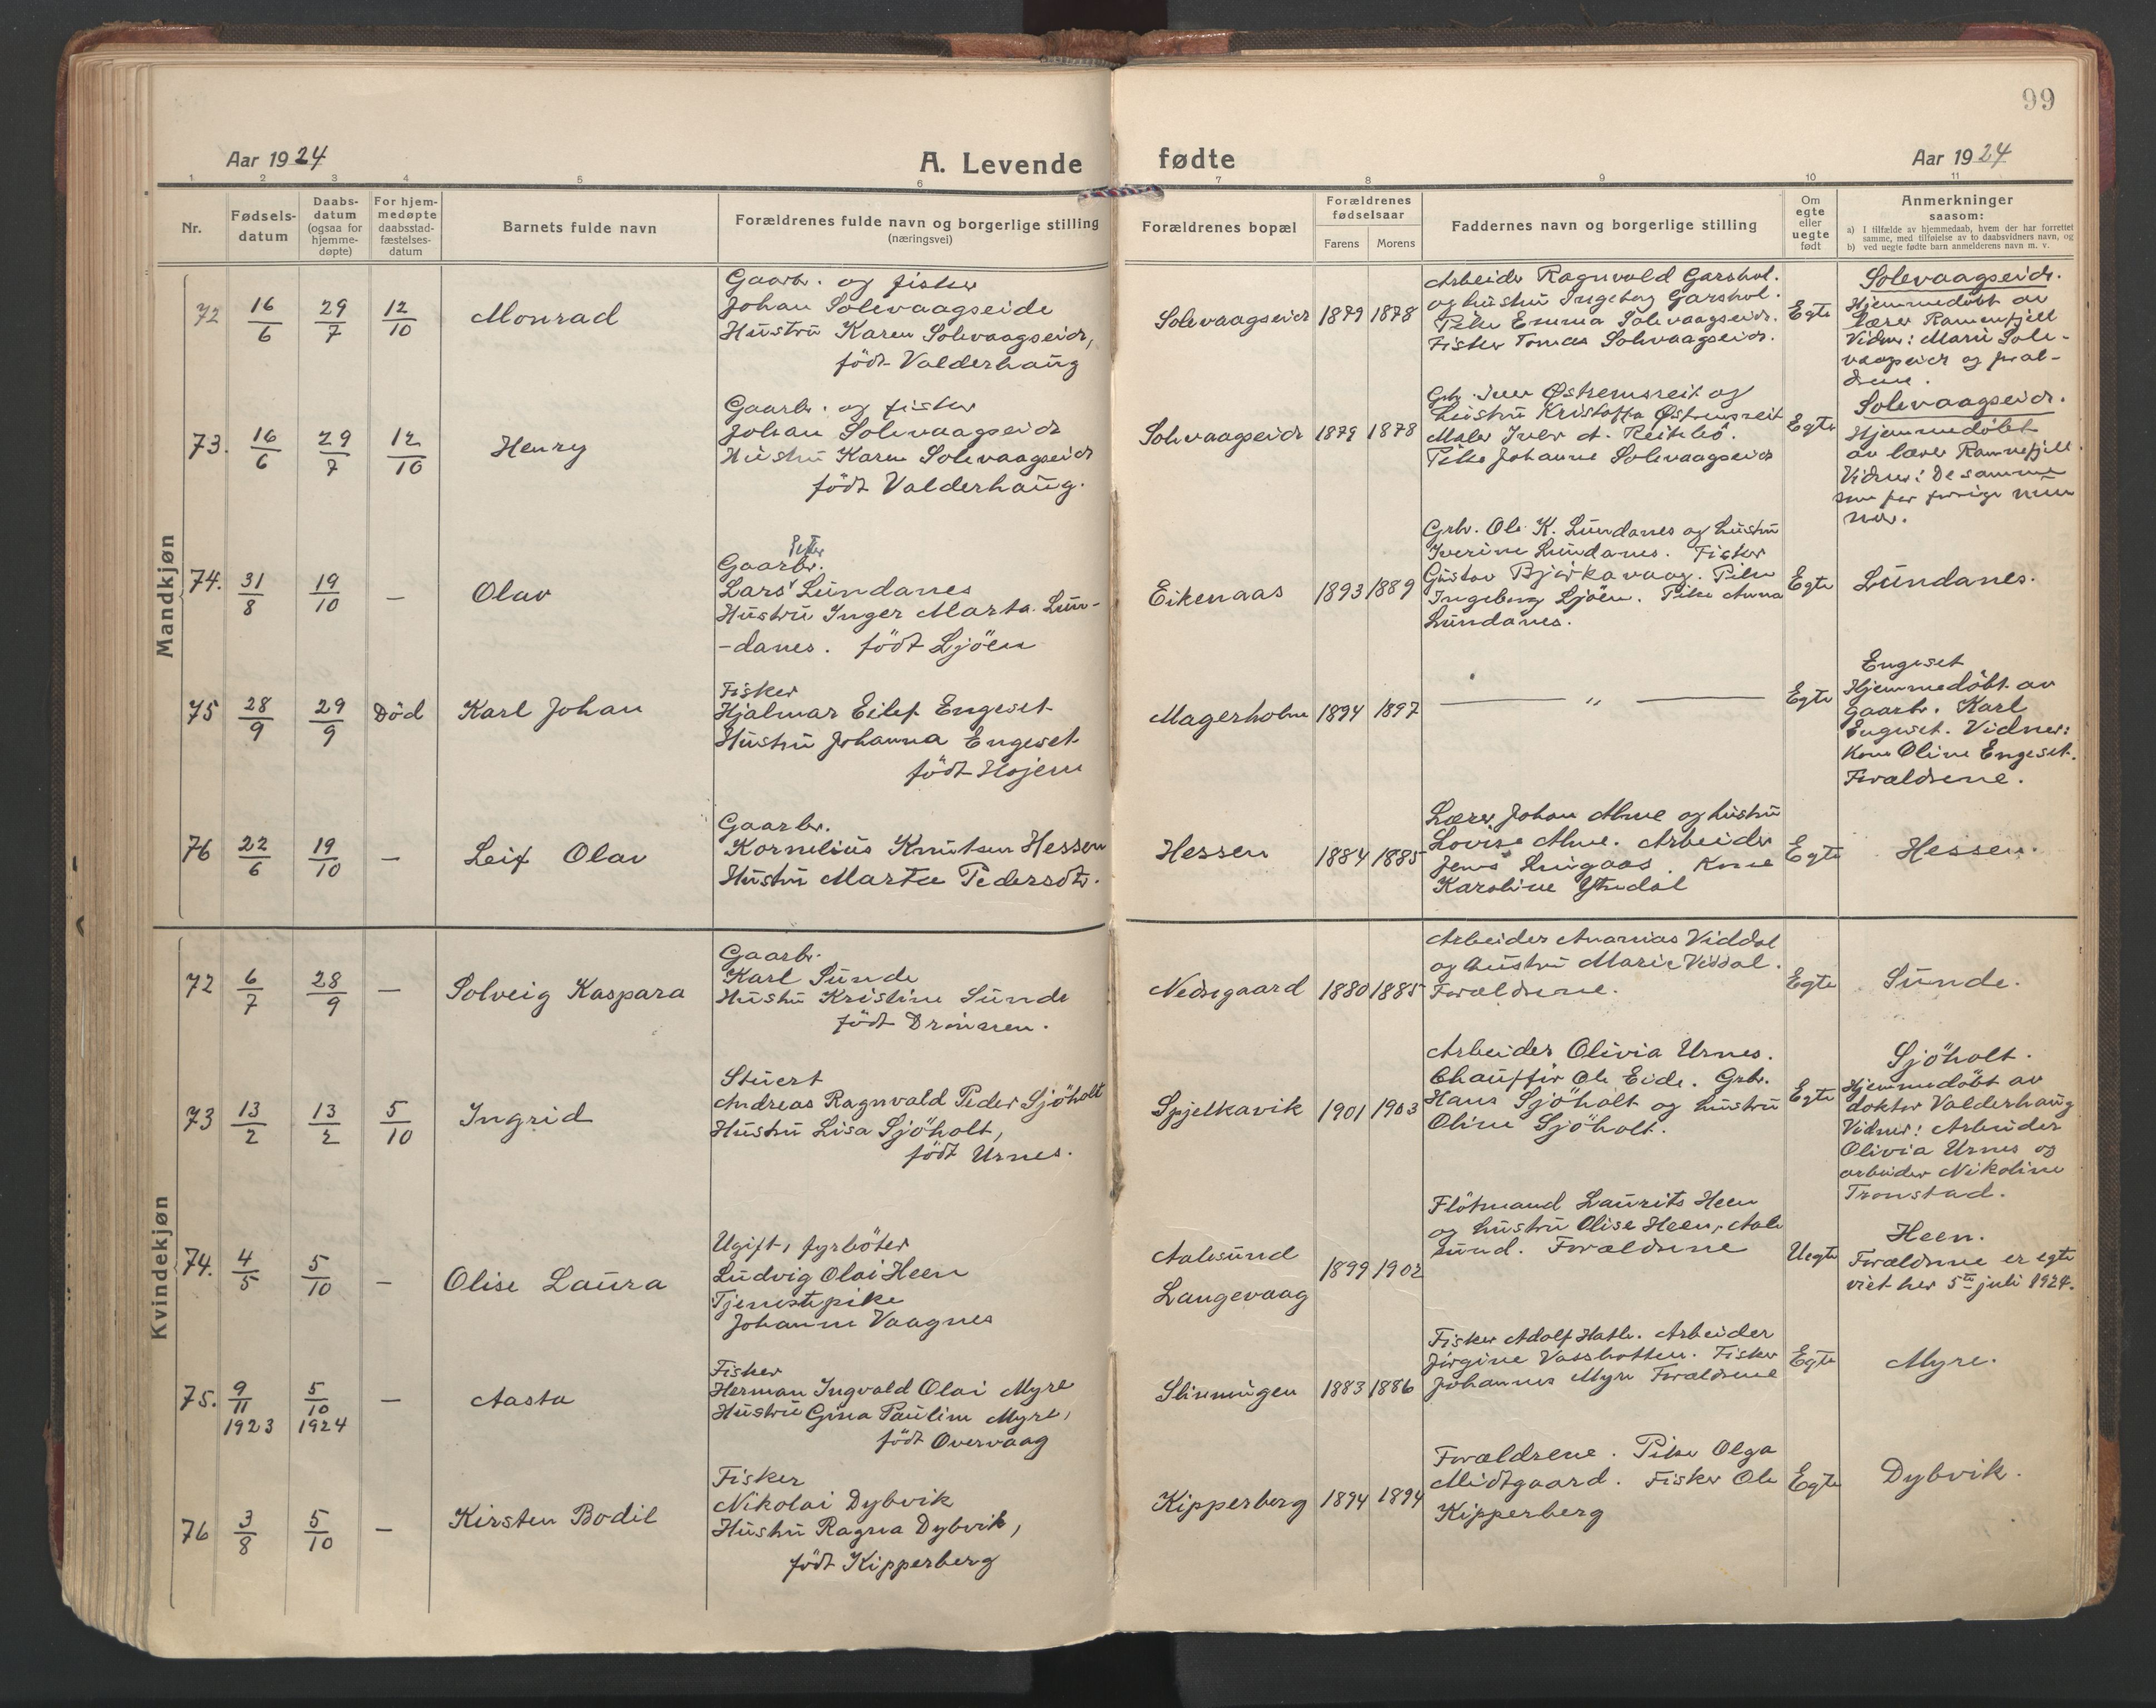 99
Aar 1924
A. Levende
fødte
Aar 1924
1 2 3 4 5 6 7 8 9 10 11
Nr.
Fødsels-
datum
Daabs-
datum
(ogsaa for
hjemme-
døpte)
For hjem-
medøpte
daabsstad-
fæstelses-
datum
Barnets fulde navn
Forældrenes fulde navn og borgerlige stilling
(næringsvei)
Forældrenes bopæl
Forældrenes
fødselsaar
Farens
Morens
Faddernes navn og borgerlige stilling
Om
egte
eller
uegte
født
Anmerkninger
saasom:
a) I tilfælde av hjemmedaab, hvem der har forrettet
samme, med tilføielse av to daabsvidners navn, og
b) ved uegte fødte barn anmelderens navn m. v.
Mandkjøn
72
16/6
29/7
12/10
Monrad
Gaarbr. og fisker
Johan Solevaagseide
Hustru Karen Solevaagseide,
födt Valderhaug
Solevaagseide
1879
1878
Arbeider Ragnvald Garshol.
og hustru Ingeborg Garshol.
Pike Emma Solevaagseide.
Fisker Tomas Solevaagseide.
Egte
Solevaagseide.
Hjemmedöbt av
lærer Ramnefjell
Vidner: Marie Sole-
vaagseide og foral-
drene.
73.
16/6
29/7
12/10
Henry
Gaarbr. og fisker
Johan Solevaagseide
Hustru Karen Solevaagseide
födt Valderhaug.
Solevaagseide
1879
1878
Grbr. Iver Østremsreit og
hustru Kristoffa Østremsreit
Maler Iver A. Reitebö.
Pike Johanne Solevaagseide
Egte
Solevaagseide.
Hjemmedöbt
av lærer Ramnefjell.
Vidner: De samme
som for forrige num
mer.
74.
31/8
19/10
—
Olav
Peter
Gaarbr.
Lars Lundanes
Hustru Inger Marta Lun-
-danes. födt Ljöen
Eikenaas
1893
1889
Grbr. Ole K. Lundanes og hustru
Iverine Lundanes. Fisker
Gustav Bjørkavaag. Pike
Ingeborg Ljöen. Pike Anna
Lundanes.
Egte
Lundanes.
75
28/9
29/9
Död
Karl Johan
Fisker
Hjalmar Eilef Engeset
Hustru Johanna Engeset
födt Hojem
Magerholm
1894
1897
— „ —
Egte
Engeset
Hjemmedöbt av
gaarbr. Karl
Engeset. Vidner:
Kone Oline Engeset.
Forældrene.
76
22/6
19/10
—
Leif Olav
Gaarbr.
Kornelius Knutsen Hessen
Hustru Marta Pedersdtr.
Hessen
1884
1885
Lærer Johan Alme og hustru
Lovise Alme. Arbeider
Jens Lingaas. Kone
Karoline Ytredal
Egte
Hessen.
Kvindekjøn
72
6/7
28/9
—
Solveig Kaspara
Gaarbr.
Karl Sunde
Hustru Kristine Sunde
födt Dronnen.
Nedregaard
1880
1885
Arbeider Ananias Viddal
og hustru Marie Viddal.
Forældrene.
Egte
Sunde.
73
13/2
13/2
5/10
Ingrid
Stuert
Andreas Ragnvald Peder Sjöholt
Hustru Lisa Sjöholt,
födt Urnes.
Spjelkavik
1901
1903
Arbeider Olivia Urnes.
Chauffør Ole Eide. Grbr.
Hans Sjöholt og hustru
Oline Sjöholt.
Egte
Sjöholt.
Hjemmedöbt av
doktor Valderhaug
Vidner: Arbeider
Olivia Urnes og
arbeider Nikoline
Tronstad.
74.
4/5
5/10
—
Olise Laura
Ugift, fyrböter
Ludvig Olai Heen
Tjenestepike
Johanne Vaagnes
Aalesund
Langevaag
1899
1902
Flötmand Laurits Heen
og hustru Olise Heen, Aale
sund. Forældrene
Uegte
Heen.
Forældrene er egte
viet her 5te juli 1924.
75.
9/11
1923
5/10
1924
—
Aasta
Fisker
Herman Ingvald Olai Myre
Hustru Gina Pauline Myre,
födt Overvaag
Slinningen
1883
1886
Fisker Adolf Hatle. Arbeider
Jørgine Vassbotten. Fisker
Johannes Myre Forældrene
Egte
Myre.
76
3/8
5/10
—
Kirsten Bodil
Fisker
Nikolai Dybvik
Hustru Ragna Dybvik,
födt Kipperberg
Kipperberg
1894
1894
Forældrene. Pike Olga
Midtgaard. Fisker Ole
Kipperberg
Egte
Dybvik.